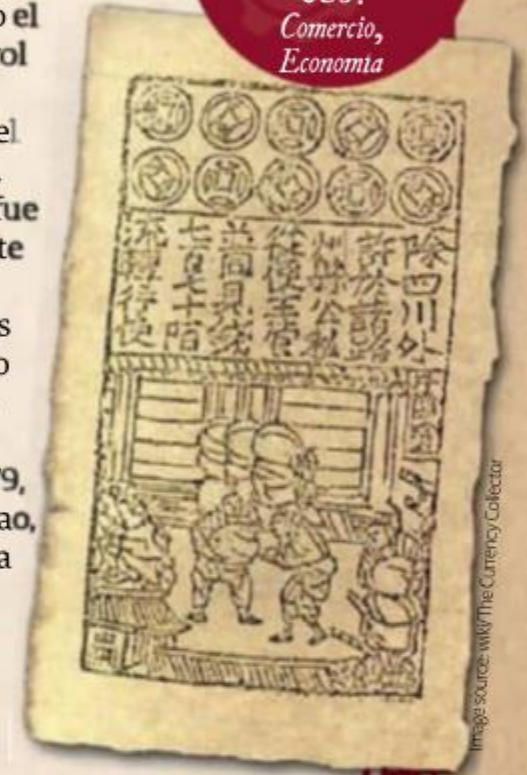 el
fue
USO:
Comercio,
Economía
除四川外
許於諸路
州縣公私
從便主管
並同見錢
七百七十陌
流轉行使
Image source: wiki/The Currency Collector